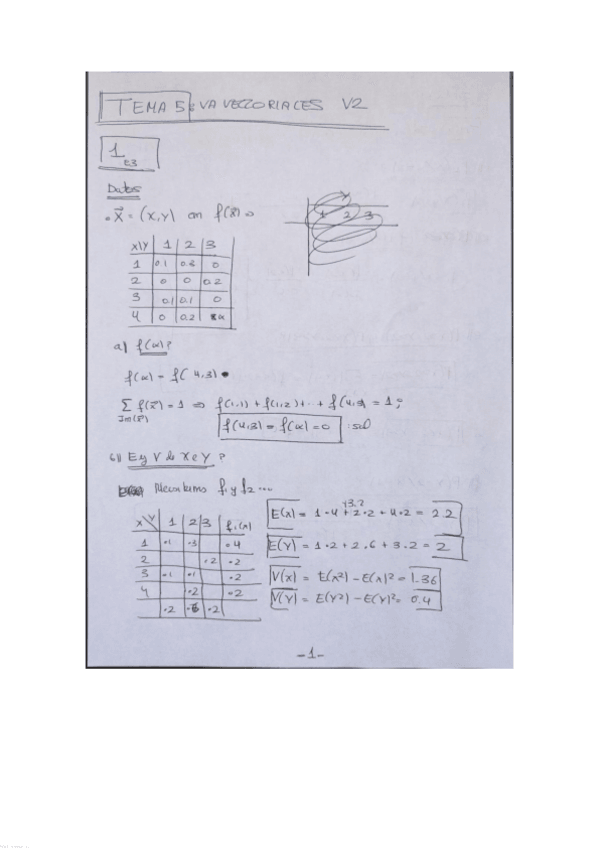 TEMA 5: VA VECTORIALES V2
1 E3
Datos
• X⃗ = (X,Y) con f(x⃗) ⇒
Y
1 2 3
X\Y 1 2 3
1 0.1 0.3 0
2 0 0 0.2
3 0.1 0.1 0
4 0 0.2 α
a) f(α)?
f(α) = f(4,3)
∑ f(x⃗) = 1 ⇒ f(1,1) + f(1,2) + .. + f(4,3) = 1;
Im(x⃗)
f(4,3) = f(α) = 0 : sol
b) E y V de X e Y ?
Necesitamos f1 y f2 ....
X\Y 1 2 3 f1(x)
1 .1 .3 .4
2 .2 .2
3 .1 .1 .2
4 .2 .2
.2 .6 .2
+3.2
E(X) = 1·4 + 2·2 + 4·2 = 2.2
E(Y) = 1·2 + 2.6 + 3.2 = 2
V(X) = E(X²) - E(X)² = 1.36
V(Y) = E(Y²) - E(Y)² = 0.4
-1-